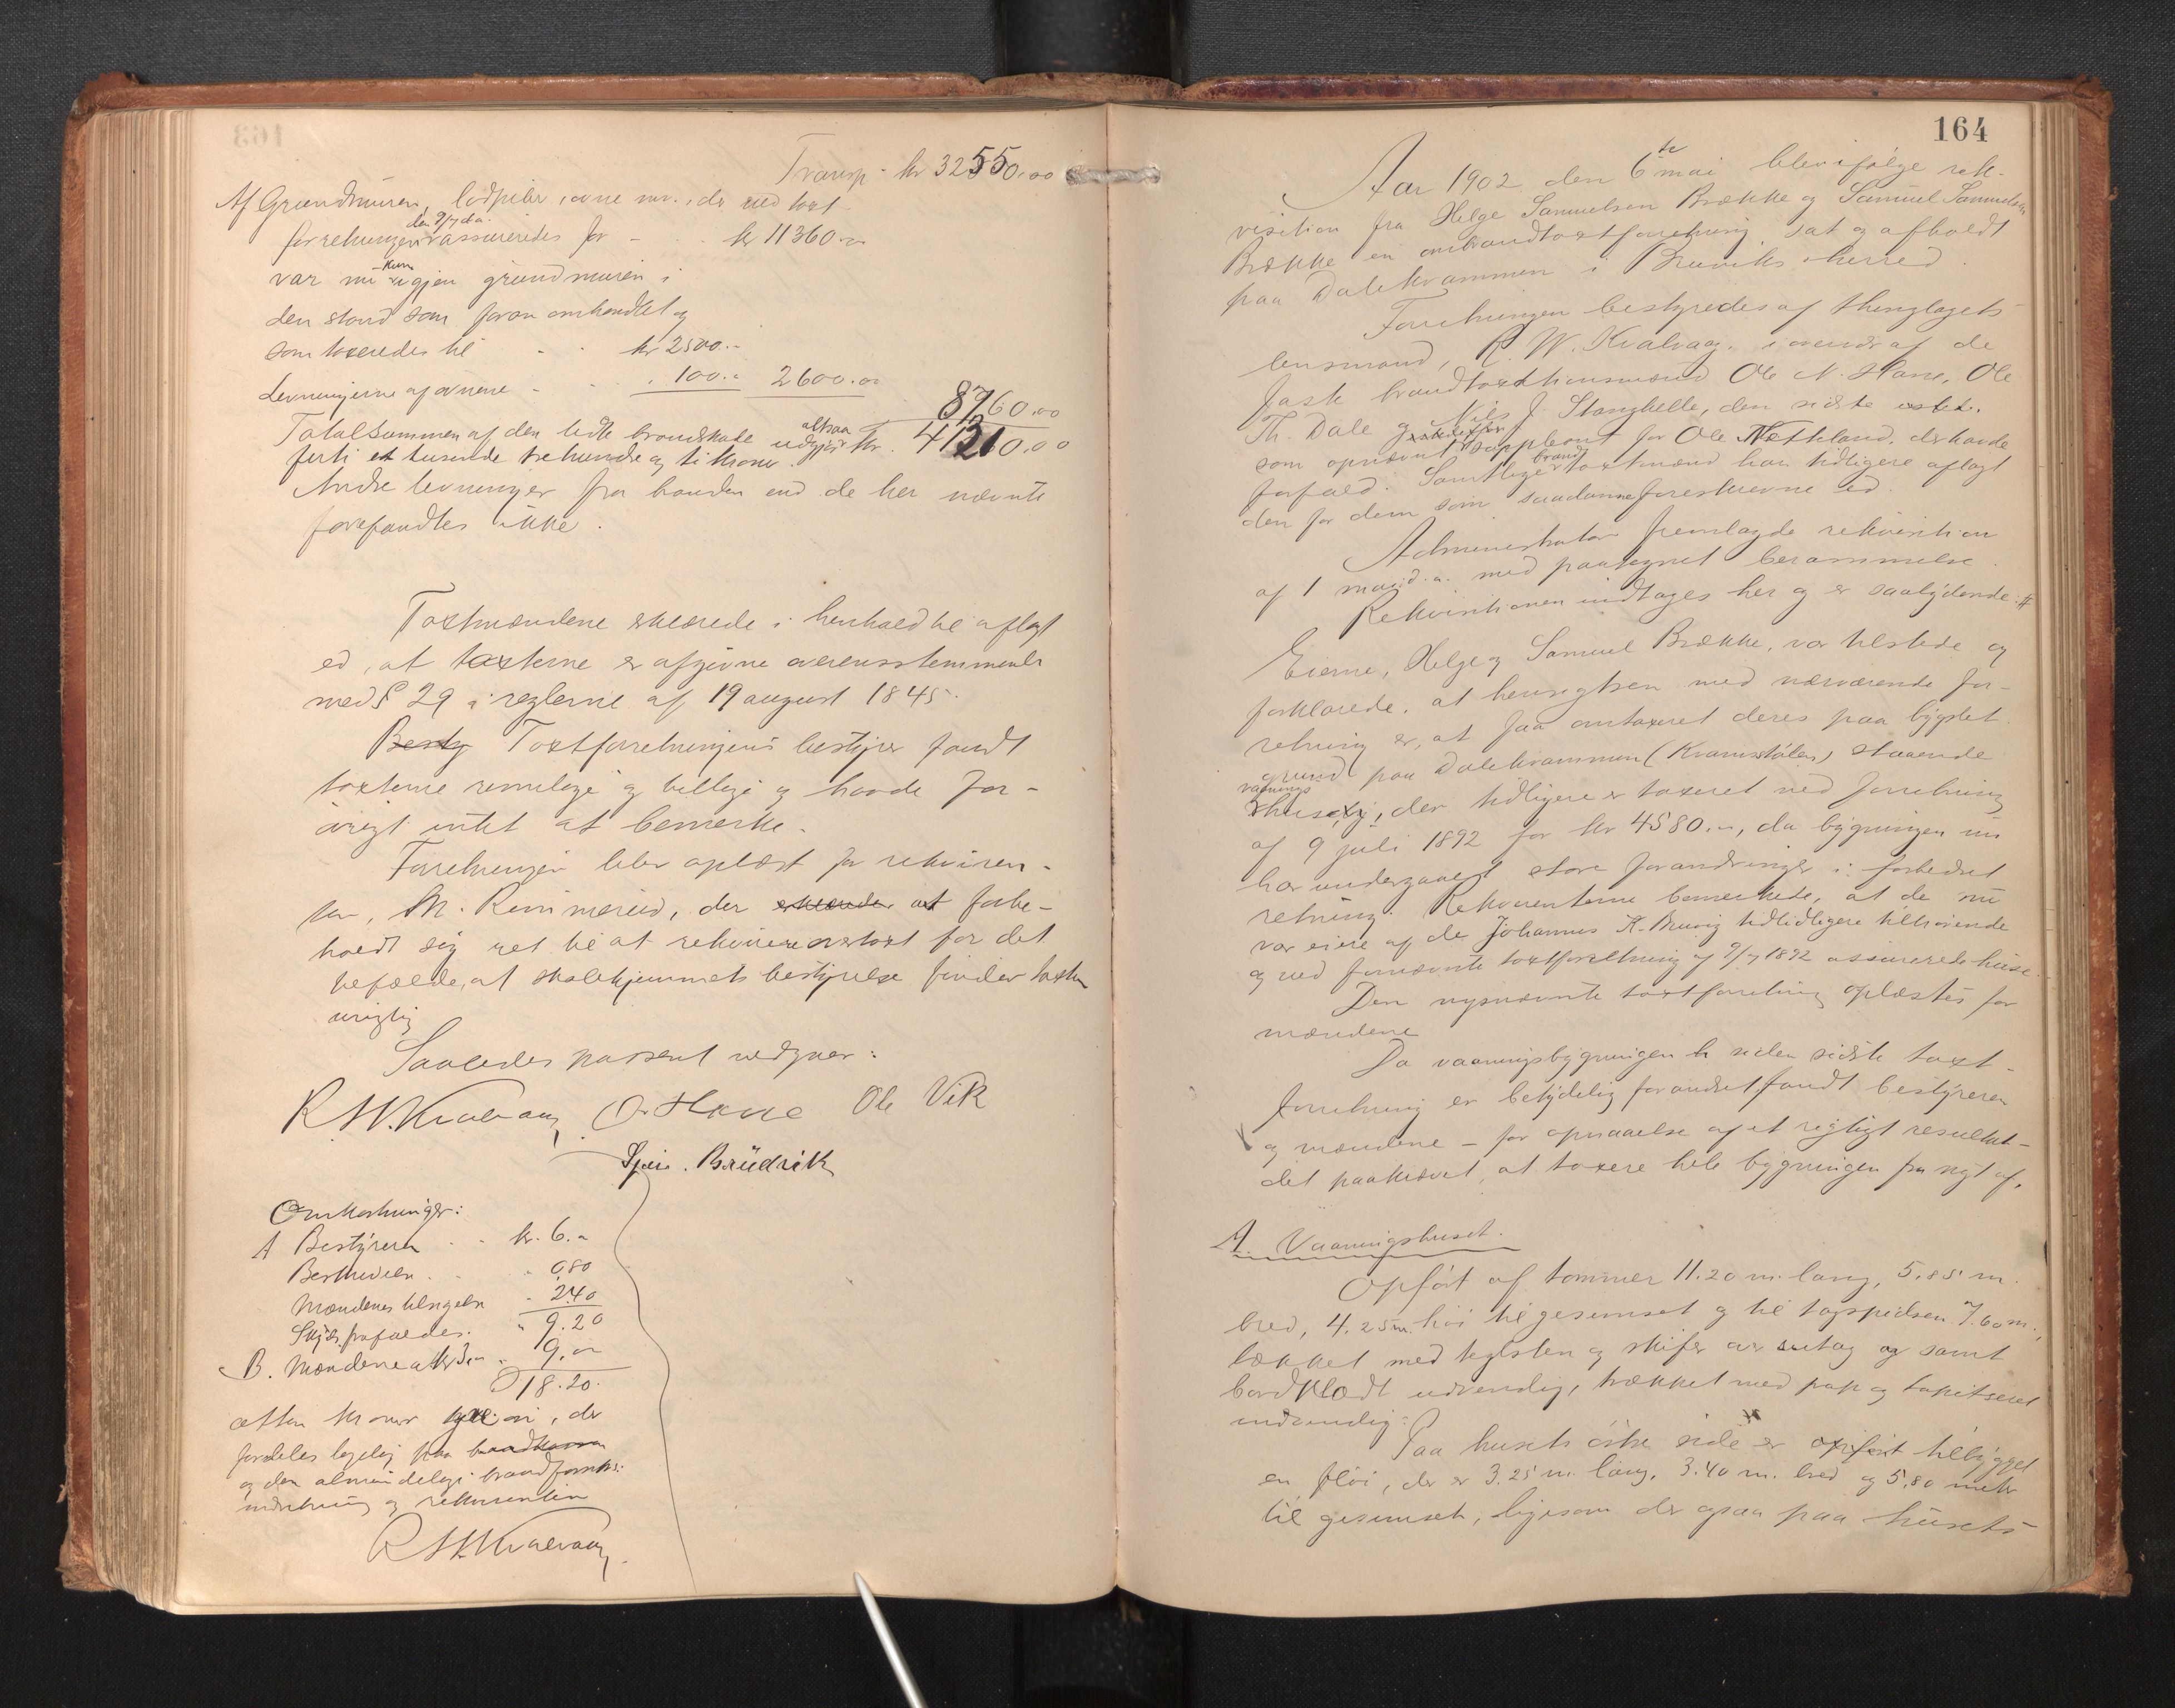 Transp. kr 32550.00
Af Grundmuren, lodpiber, ovne m.v., der ved taxt
forretningen den 9/7 d.a. assureredes for - kr 11360.00
var nu kun igjen grundmuren i
den stand som foran omhandlet og
som taxeredes til kr 2500.-
Levningerne af ovnene - 100.- 2600.00
8760.00
Totalsummen af den lidte brandskade udgjør altsaa kr. 41310.00
firti et tusende trehundre og ti kroner.
Andre levninger fra branden end de her nævnte
forefandtes ikke.
Taxtmændene erklærede i henhold til aflagt
ed, at taxterne er afgivne overensstemmende
med § 29 i reglerne af 19 august 1845.
Besty Taxtforretningens bestyrer fandt
taxterne rimelige og billige og havde for-
øvrigt intet at bemerke.
Forretningen blev oplæst for rekviren-
ten, M. Rimmereid, der erklærede at forbe-
holdt sig ret til at rekvirere overtaxt for det
tilfælde, at skolehjemmets bestyrelse finder taxten
urigtig
Saaledes passeret vedgaar:
R W. Kvalvaag O. Hane Ole Vik
Sjur. Brüdvik
Omkostninger:
A Bestyreren kr. 6.-
Berammelsen 0,80
Mændenes tilsigelse 2.40
Skyds frafaldes. " 9.20
B. Mændene a kr 3,- " 9.00
18.20.
atten kroner tyve øre, der
fordeles ligelig paa brandkassen
og den almindelige brandforsikr.
indretning og rekvirenten
R W. Kvalvaag
164
Aar 1902 den 6te mai blev ifølge rek-
visition fra Helge Samuelsen Brække og Samuel Samuelsen
Brække en ombrandtaxtforretning sat og afholdt
paa Dalekvammen i Bruviks herred.
Forretningen bestyredes af thinglagets
lensmand, R. W. Kvalvaag, i overvær af de
faste brandtaxtionsmænd Ole N. Hane, Ole
Th. Dale og Nils J. Stanghelle, den sidste
som opnævnt suppleant for Ole Nætteland, der havde
forfald. Samtlige brandtaxtmænd har tidligere aflagt
den for dem som saadanne foreskrevne ed.
Administrator fremlagde rekvisition
af 1 mai d.a. med paategnet berammelse.
Rekvisitionen indtages her og er saalydende: #
Eierne, Helge og Samuel Brække, var tilstede og
forklarede, at hensigten med nærværende for-
retning er, at faa omtaxeret deres paa bygslet
grund paa Dalekvammen (Kvamsstølen) staaende
vaaningshus, der tidligere er taxeret ved forretning
af 9 juli 1892 for kr 4580.-, da bygningen nu
har undergaaet store forandringer i forbedret
retning. Rekvirenterne bemerkede, at de nu
var eiere af de Johannes A. Bruvig tidligere tilhørende
og ved fornævnte taxtforretning af 9/7 1892 assurerede huse.
Den nysnævnte taxtforretning oplæstes for
mændene
Da vaaningsbygningen siden sidste taxt-
forretning er betydelig forandret, fandt bestyreren
og mændene - for opnaaelse af et rigtigt resultat -
det paakrævet, at taxere hele bygningen fra nyt af.
A. Vaaningshuset.
Opført af tømmer 11.20 m. lang, 5.85 m.
bred, 4.25 m. høi til gesimset og til tagspidsen 7.60 m.,
tækket med teglsten og skifer samt
bordklædt udvendig, trækket med pap og tapetseret
indvendig.
Paa husets østre side er opført tilbygget
en fløi, der er 3.25 m. lang, 3.40 m. bred og 5.80 meter
til gesimset, ligesom der ogsaa paa husets